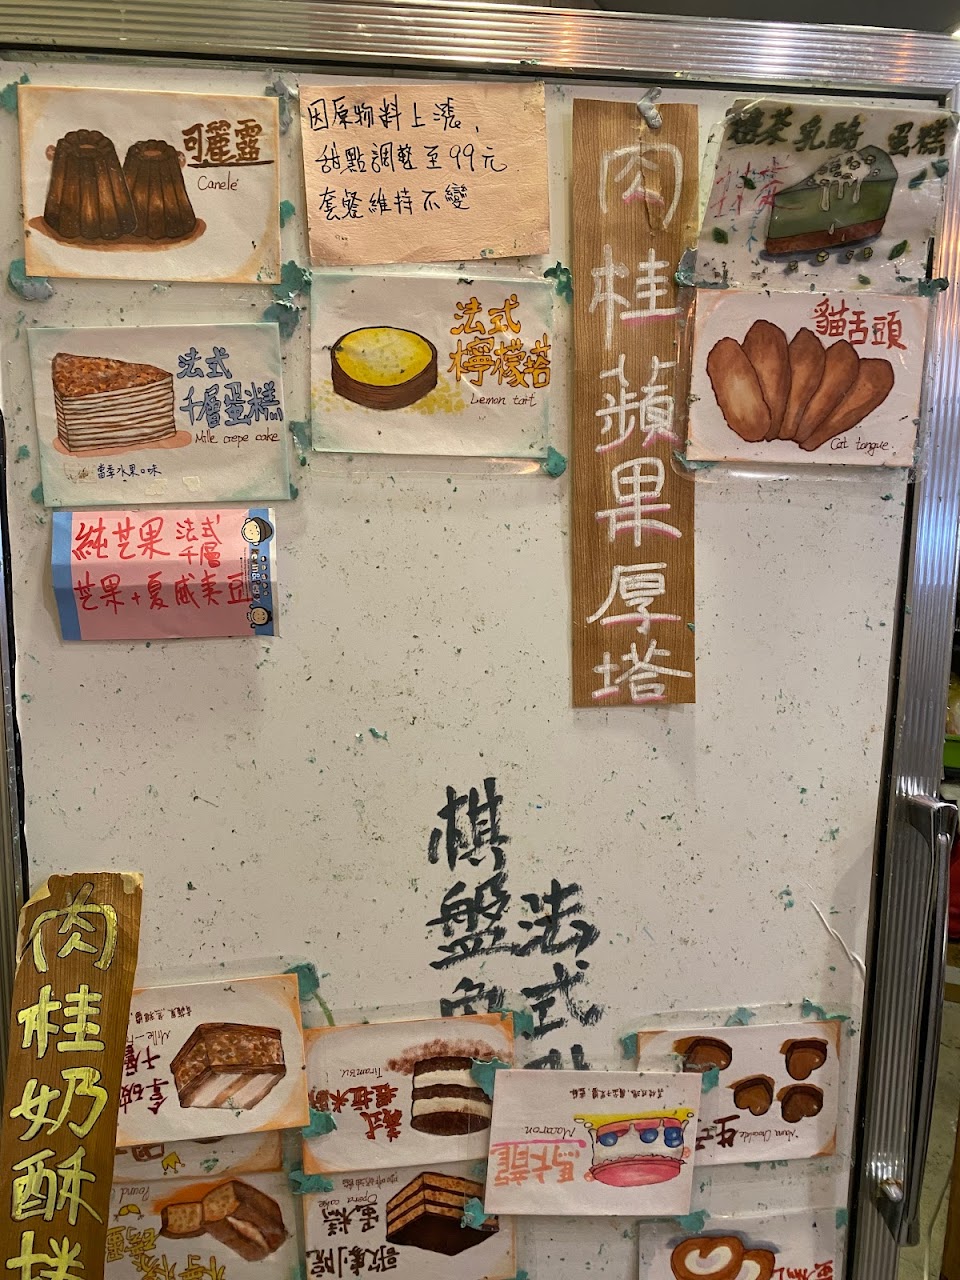 可麗露
Canelé
因原物料上漲,
甜點調整至99元
套餐維持不變
肉桂蘋果厚塔
抹茶乳酪 蛋糕
法式
千層蛋糕
Mille crepe cake
當季水果口味
法式
檸檬塔
Lemon tart
貓舌頭
Cat tongue
純芒果 法式
千層
芒果+夏威夷豆
棋盤
法式
肉桂奶酥塔
拿破
千層
Mille
Tiramisu
義式
提拉米
Macaron
馬卡龍
生
Nama Chocolate
Pound
歌劇院
蛋糕
Opera cake